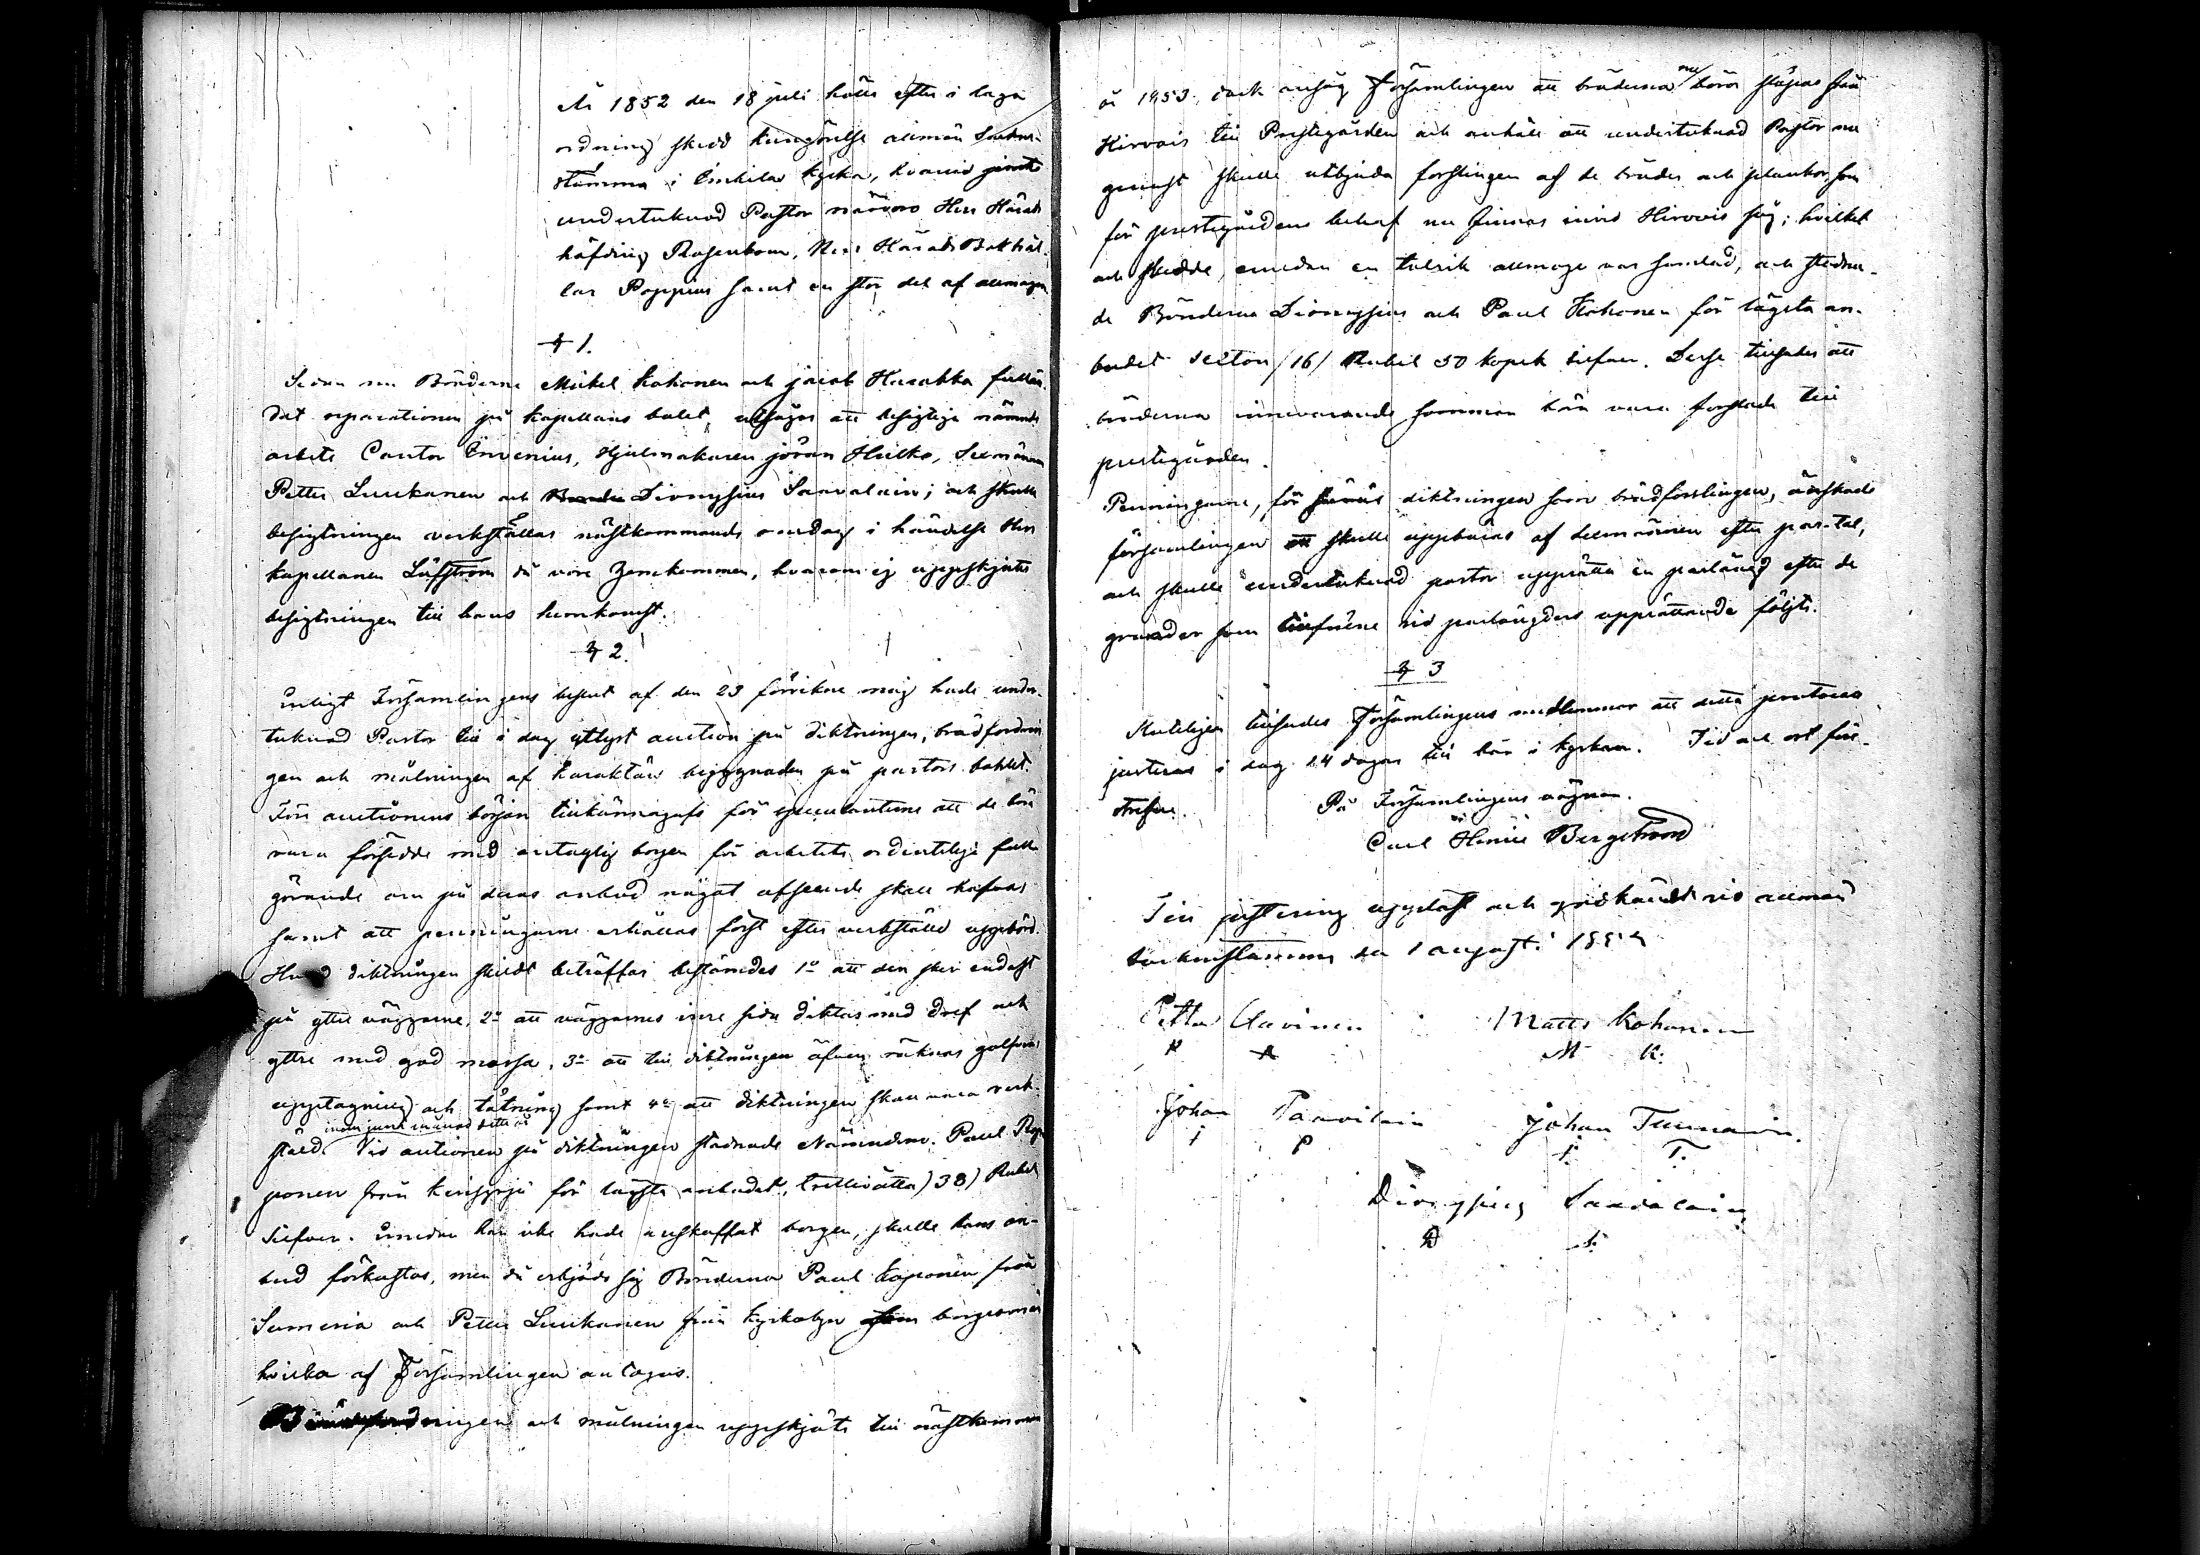 År 1852 den 18 juli hölls efter i laga
ordning skedd kungörelse allmän Sockne-
stämma i kyrka, hvarvid jemte
undertecknad Pastor närvoro Herr Härads
höfding Rosenbom, Herr Härads Bokhål-
lar Poppius samt en stor del af allmogen
§ 1.
Sedan nu Bönderne Mickel Kohonen och Jacob Harakka fullän-
dat reparationen på Kapellans bolet, utsågos att besigtiga nämnde
arbete Cantor, Hjulmakaren Jöran Hulko, Sexmännen
Petter Luukanen och Dionysius Saavalain; och skulle
besigtningen verkställas nästkommande onsdag i händelse Herr
Kapellanen Löfström då vore hemkommen, hvarom ej uppskjutes
besigtningen till hans hemkomst.
§ 2.
Enligt Församlingens beslut af den 23 förvikne maj hade under-
tecknad Pastor till i dag utlyst auction på diktningen, brädfordrin
gen och målningen af karaktärs byggnaden på pastors bohlet.
Före auctionens början tillkännagafs för speculanterne att de böra
vara försedde med antaglig borgen för arbetets ordentliga full-
görande om på deras anbud något afseende skall hafvas
samt att penningarne erhållas först efter verkställd uppbörd.
Hvad diktningen skildt beträffar bestämdes 1o att den sker endast
på yttre väggarne, 2o att väggarnes inre sida diktas med dref och
yttre med god mossa, 3o att till diktningen äfven räknas golfvens
upptagning och tätning samt 4o att diktningen skall vara verk-
inom juni månad detta år
ställd. Vid auctionen på diktningen stadnade Nämndem. Paul Rop-
ponen från för lägsta anbudet, trettioåtta) 38) Rubel
Silfver. Emedan han icke hade anskaffat borgen, skulle hans an-
bud förkastas, men då erbjödo sig Bönderna Paul Kaponen från
Sumeria och Petter Luukanen från Kyrkobyn som borgesmän
hvilka af Församlingen antogos.
Brädfordringen och målningen uppskjöts till nästkomman
år 1853, dock ansåg Församlingen att bräderna nu böra släpas från
Hirvois till Prestegården och anhöll att undertecknad Pastor nu
genast skulle utbjuda forslingen af de bräder och plankor, som
för prestegårdens behof nu finnas invid Hirvois såg; hvilket
och skedde, emedan en talrik allmoge var samlad, och stadna-
de Bönderna Dionysius och Paul Kohonen för lägsta an-
budet sexton /16/ Rubel 50 kopek silfver. Desse tillsades att
bräderna innevarande sommar böra vara forslade till
prestegården.
Penningarne, för diktningen som brädforslingen, önskade
församlingen att skulle uppbäras af sexmännen efter par-tal,
och skulle undertecknad pastor upprätta en parlängd efter de
grunder som tillförene vid parlängders upprättande följts.
§ 3
Slutligen tillsades Församlingens medlemmar att detta protocoll
justeras i dag 14 dagar till här i kyrkan. Tid och ort för-
skrifne.
På Församlingens vägnar.
Carl Henric Bergstrøm
Till justering uppläst och godkändt vid allmän
sockenstämma den 1 august. 1852
Petter Uavinen Matts Kohonen
P A M K.
Johan Paavilain Johan Tiimain.
J P J. T.
Dionysius Saavalain
D S.